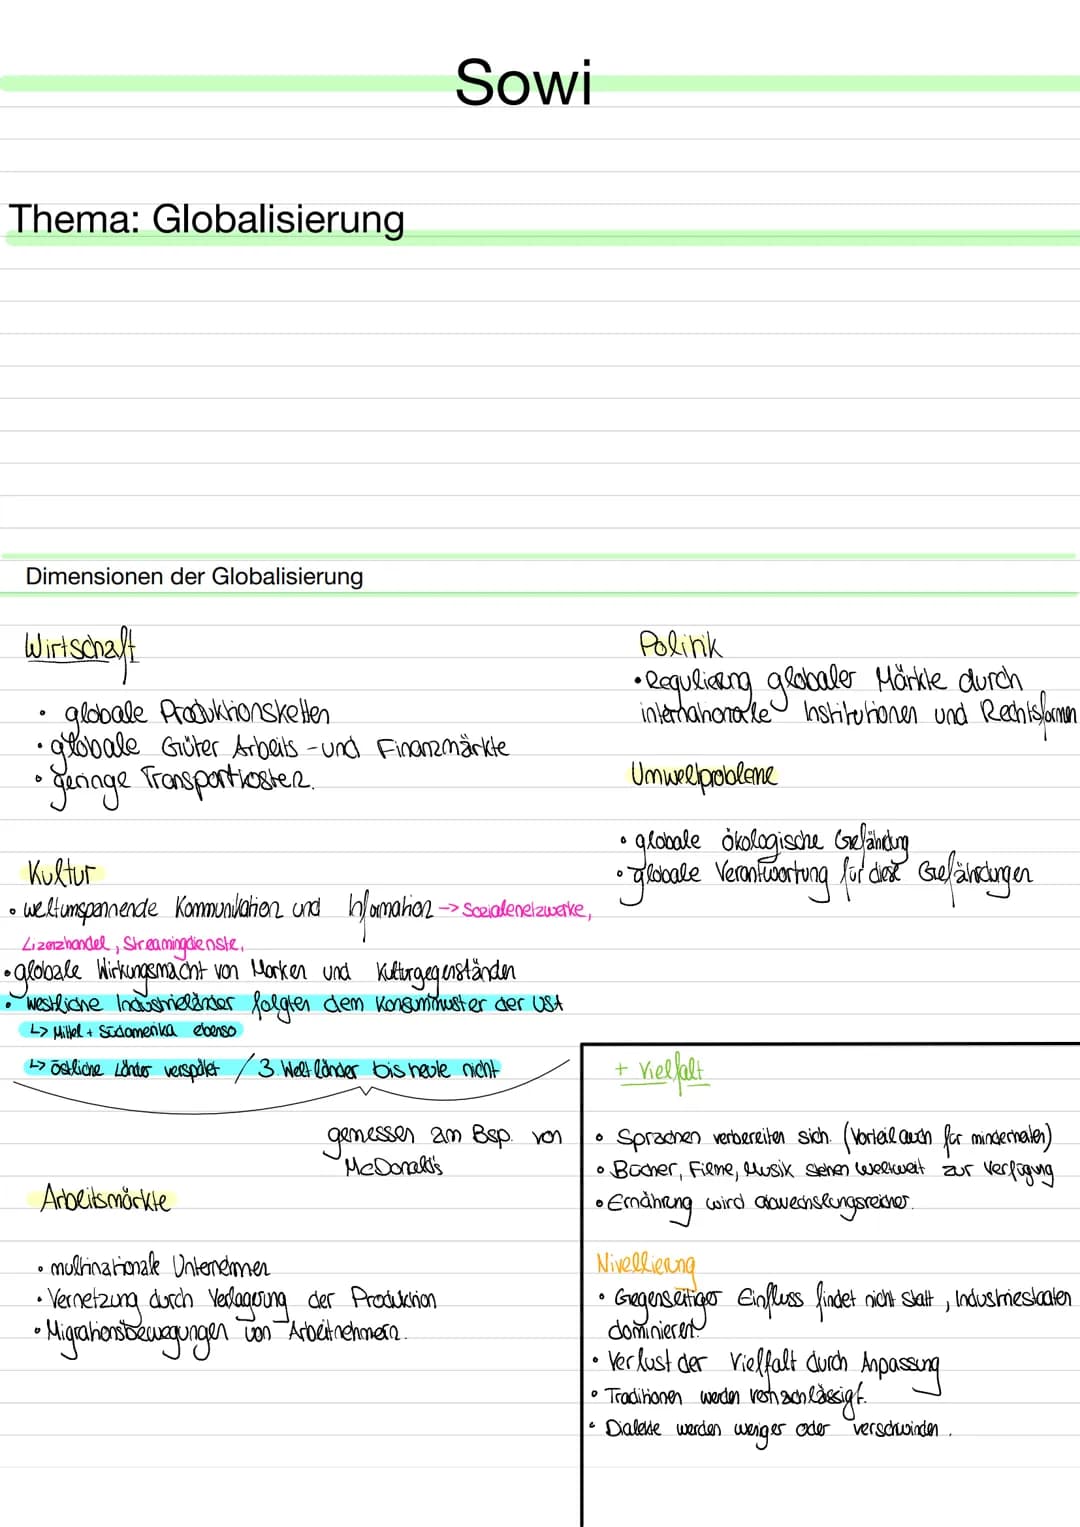 Sowi
Thema: Globalisierung
Dimensionen der Globalisierung
Wirtschaft
• globale Produktionsketten
• globale Güter Arbeits - und Finanzmärkte
• geringe Transportkosten.
Kultur
• weltumspannende Kommunikation und Information -> Sozialenetzwerke,
Lizenzhandel, Streamingdienste,
• globale Wirkungsmacht von Marken und Kulturgegenständen
• westliche Industrieländer folgten dem Konsummuster der USA
↳ Mittel + Südamerika ebenso
↳ östliche Länder verspätet / 3. Welt länder bis heute nicht
gemessen am Bsp. von
McDonald's
Arbeitsmärkte
• multinationale Unternehmen
• Vernetzung durch Verlagerung der Produktion
• Migrationsbewegungen von Arbeitnehmern.
Politik
• Regulierung globaler Märkte durch
internationale Institutionen und Rechtsformen
Umweltprobleme
• globale ökologische Gefährdung
• globale Verantwortung für diese Gefährdungen
+ Vielfalt
• Sprachen verbereiten sich. (Vorteil auch für minderheiten)
• Bücher, Filme, Musik stehen weltweit zur Verfügung
• Ernährung wird abwechslungsreicher.
Nivellierung
• Gegenseitiger Einfluss findet nicht statt, Industriestaaten
dominieren.
• Verlust der Vielfalt durch Anpassung
• Traditionen werden vernachlässigt.
• Dialekte werden weniger oder verschwinden.